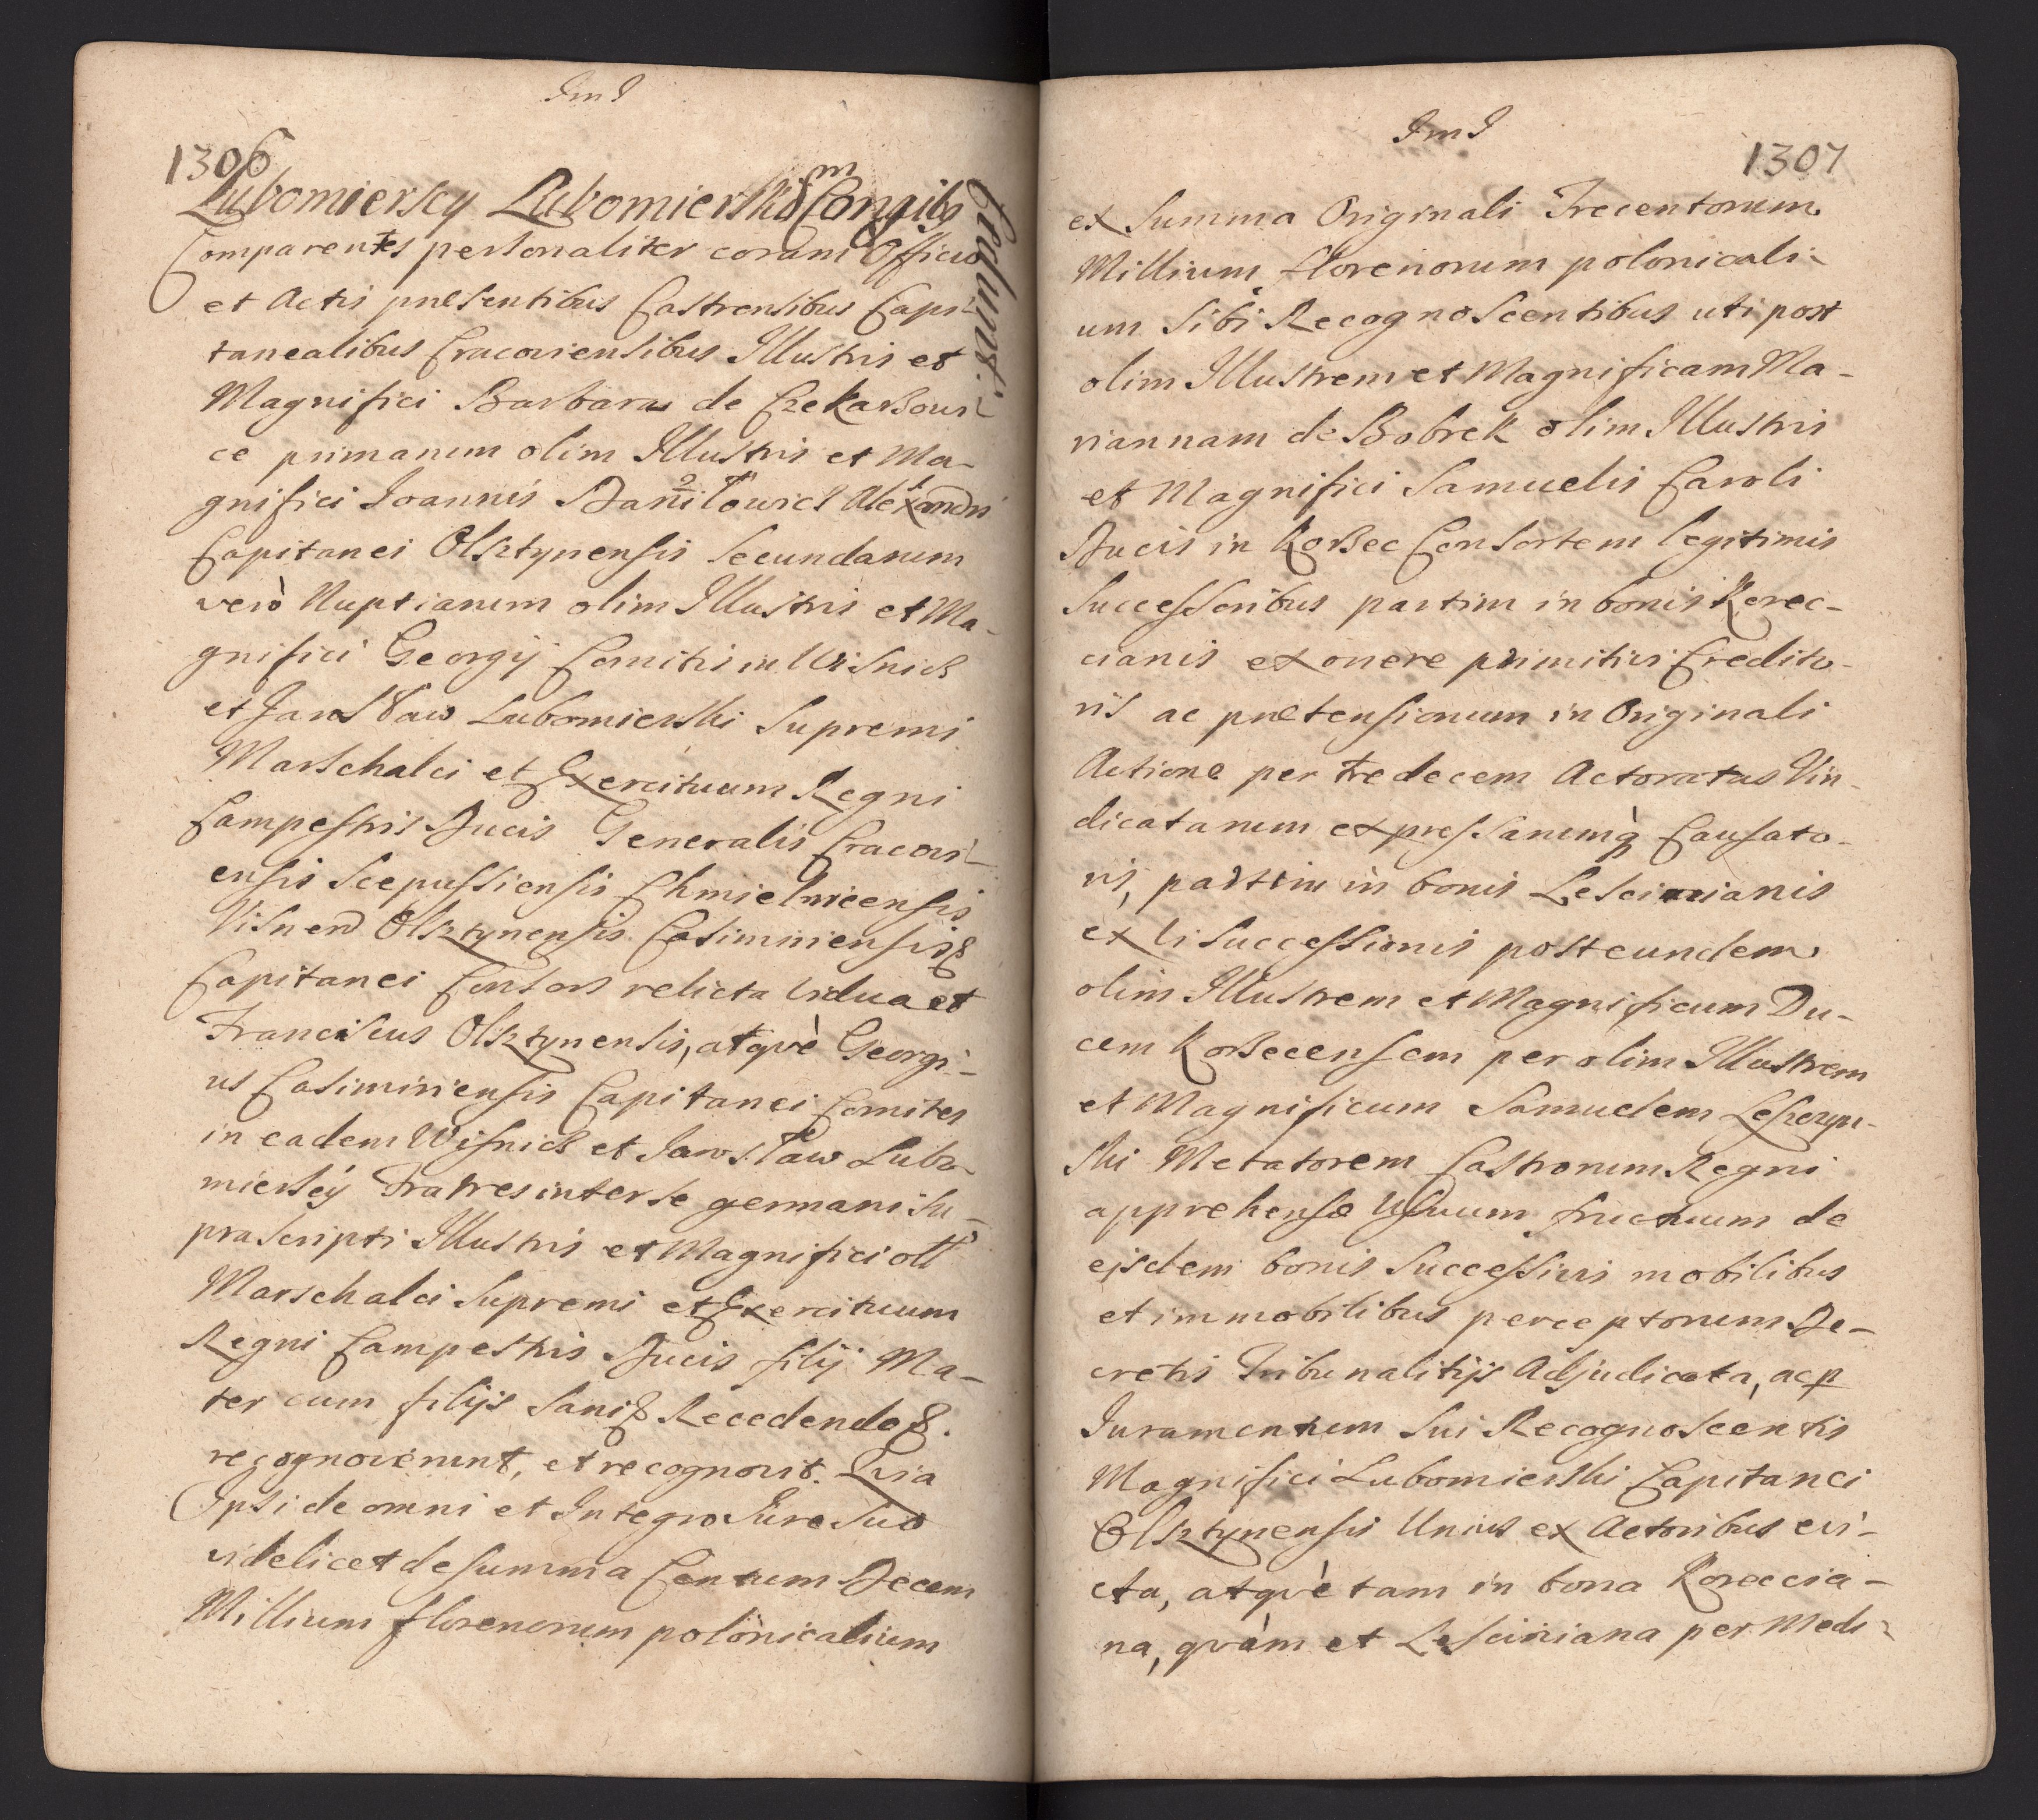 JmJ
1306
Lubomierscy Lubomierski m Congil
Cedunt.
Comparentes personaliter coram Officio
et Actis præsentibus Castrensibus Capi-
tanealibus Cracoviensibus Illustris et
Magnifici Barbara de Czekarsovi-
ce primarum olim Illustris et Ma-
gnifici Joannis Daniłowicz Alexandri
Capitanei Olsztynensis Secundarum
verò Nuptiarum olim Illustris et Ma-
gnifici Georgij Comitis in Wisnicz
et Jarosław Lubomierski Supremi
Marschalci et Exercituum Regni
Campestris Ducis Generalis Cracovi-
ensis Scepussiensis Chmielnicensis
Olsztynensis Casimiriensis &
Capitanei Consors relicta vidua et
Franciscus Olsztynensis, atqvè Georgi-
us Casimiriensis Capitanei Comites
in eadem Wisnicz et Jarosław Lubo-
mierscy Fratres inter se germani Su-
prascripti Illustris et Magnifici oll
Marschalci Supremi et Exercituum
Regni Campestris Ducis filij Ma-
ter cum filijs Sani & Recedendo &.
recognoverunt, et recognovit. Qvia
Ipsi de omni et Integro Jure Suo
videlicet de summa Centum Decem
Millium florenorum polonicalium
JmJ
1307
ex Summa Originali Trecentorum
Millium florenorum polonicali-
um Sibi Recognoscentibus uti post
olim Illustrem et Magnificam Ma-
riannam de Bobrek olim Illustris
et Magnifici Samuelis Caroli
Ducis in Korsec Consortem legitimis
Successoribus partim in bonis Korec-
cianis ex onere primitivi Credito-
ris ac prætensionum in Originali
Actione per tredecem Actoratus Vin-
dicatarum expressarumq Causato-
ris, partim in bonis Lescinianis
ex vi Successionis post eundem
olim Illustrem et Magnificum Du-
cem Korsecensem per olim Illustrem
et Magnificum Samuelem Leszczyn-
ski Metatorem Castrorum Regni
apprehensæ Usuum fructuum de
ejsdem bonis Successivis mobilibus
et immobilibus perceptorum De-
cretis Tribunalitijs Adjudicata, ac p
Juramentum Sui Recognoscentis
Magnifici Lubomierski Capitanei
Olsztynensis Unius ex Actoribus evi-
cta, atqvè tam in bona Koreccia-
na, qvàm et Lesciniana per Medi-